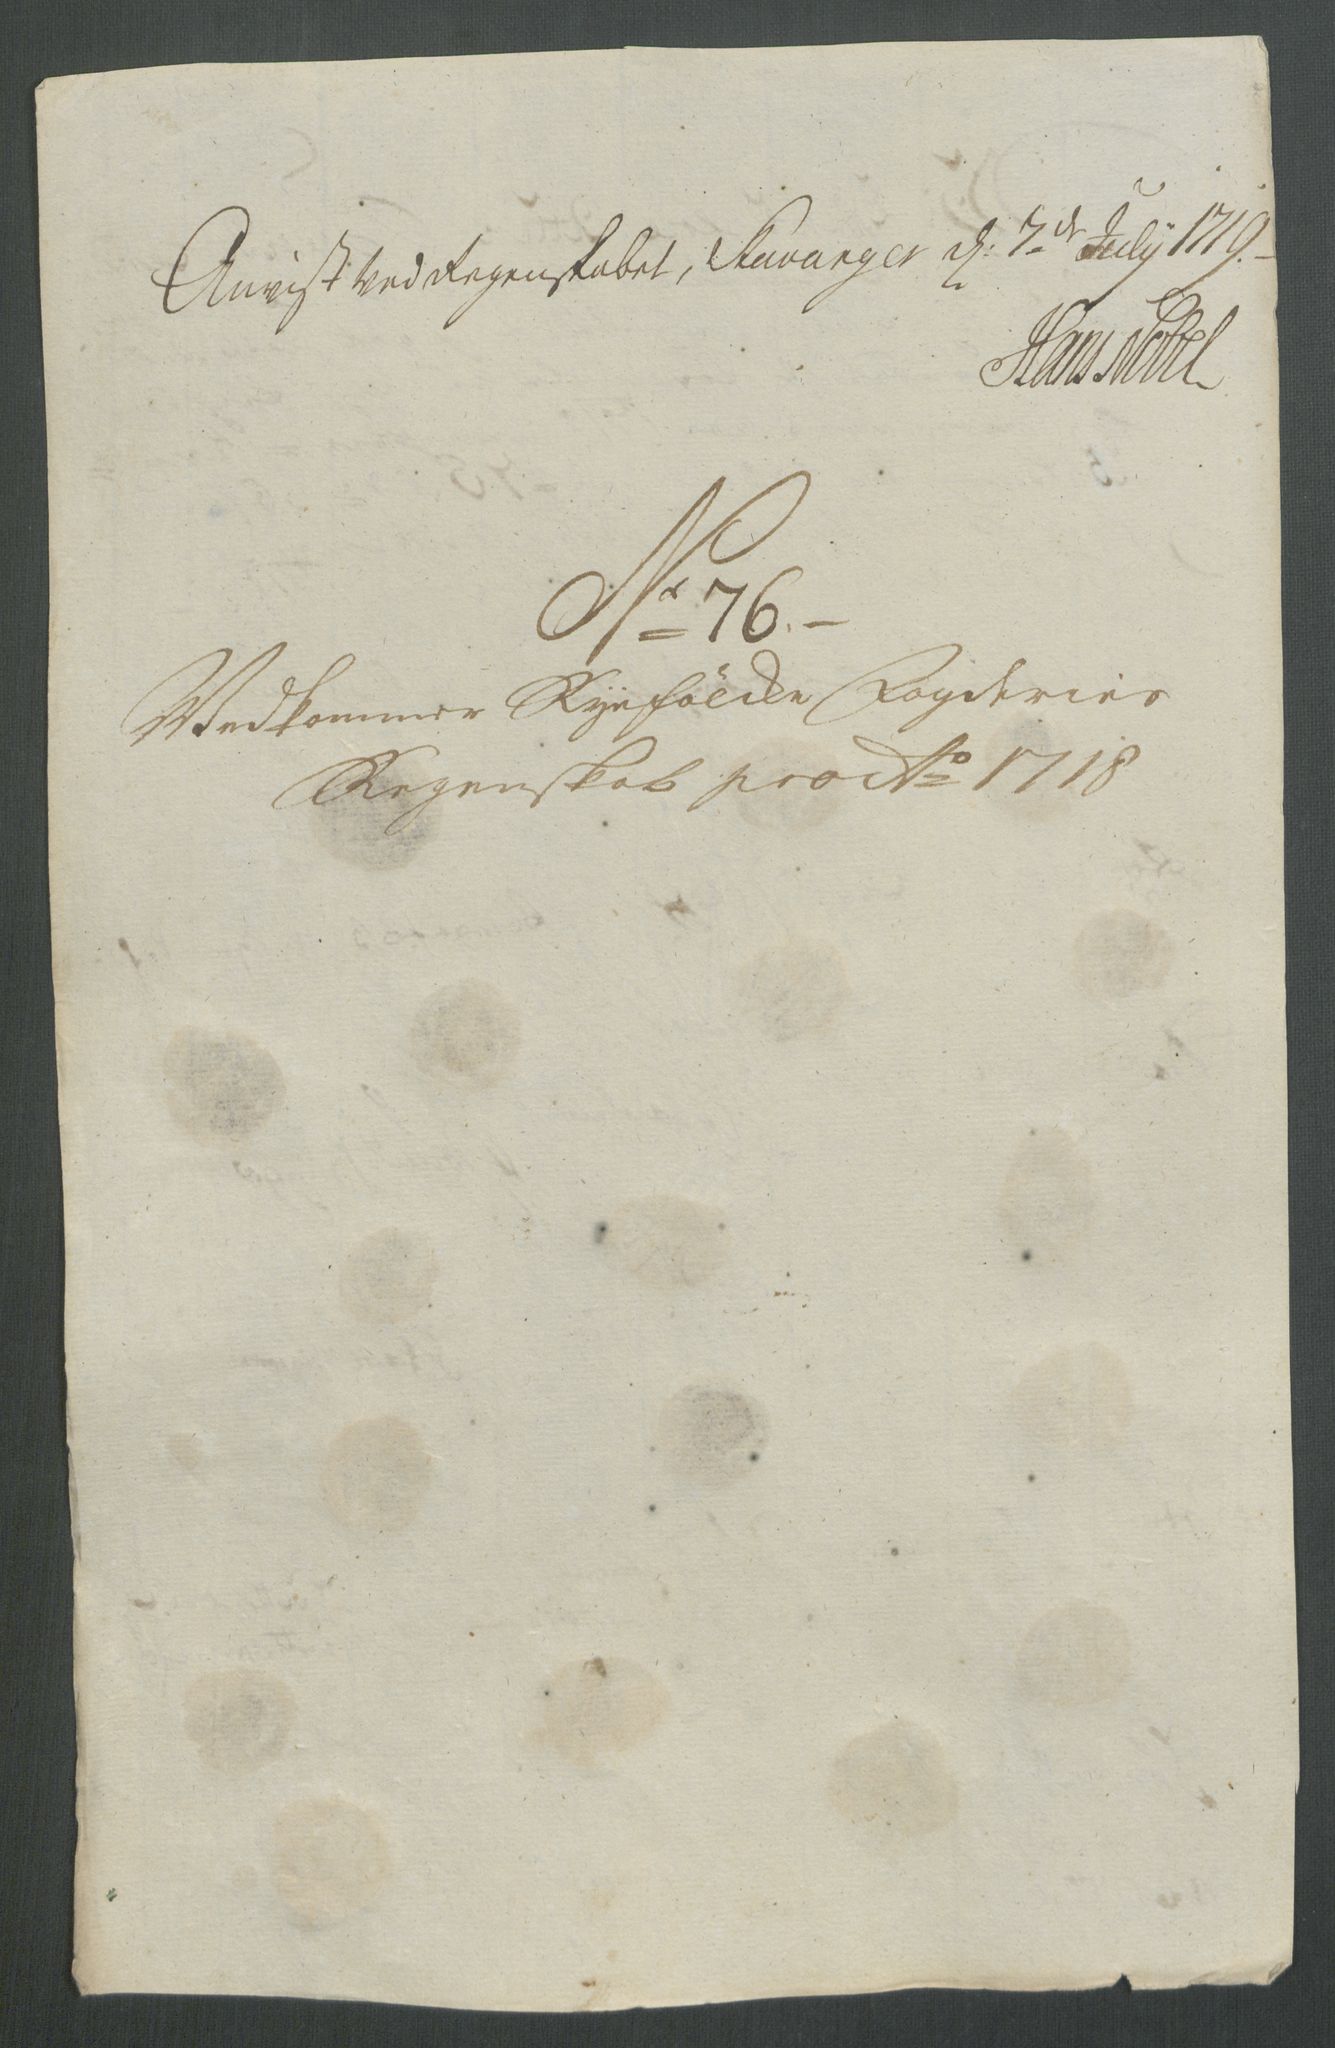 Anvist ved Regenskabet, Stavanger d: 7de July 1719.
Hans Nobel
No 76.
Vedkommer Ryefölcke Fogderies
Regenskab pro Ao 1718